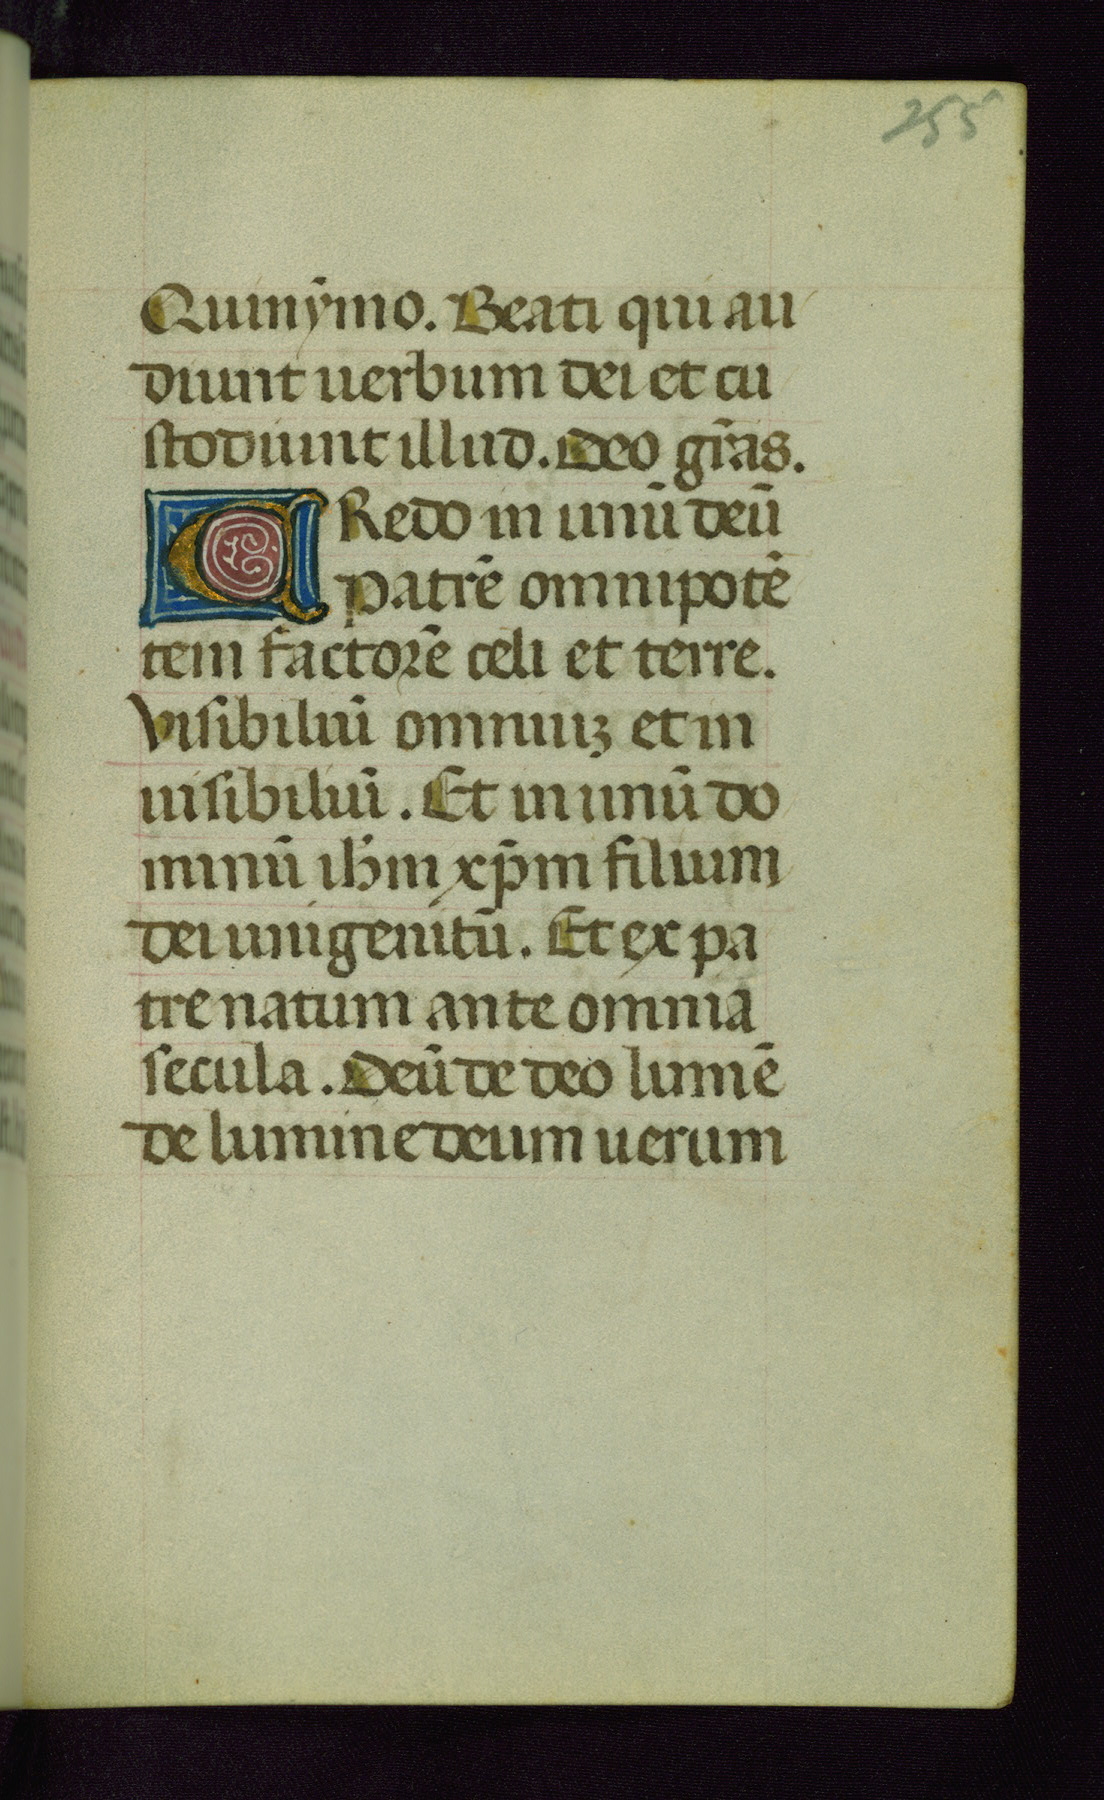 255
Quinȳmo. Beati qui au
diunt uerbum dei et cu
stodiunt illud. Deo gr̄as.
CRedo in unū deū
patrē omnipotē
tem factorē celi et terre.
Visibiliū omniuꝫ et in
uisibiliū. Et in unū do
minū ih̄m xp̄m filium
dei unigenitū. Et ex pa
tre natum ante omnia
secula. Deū de deo lumē
de lumine deum uerum